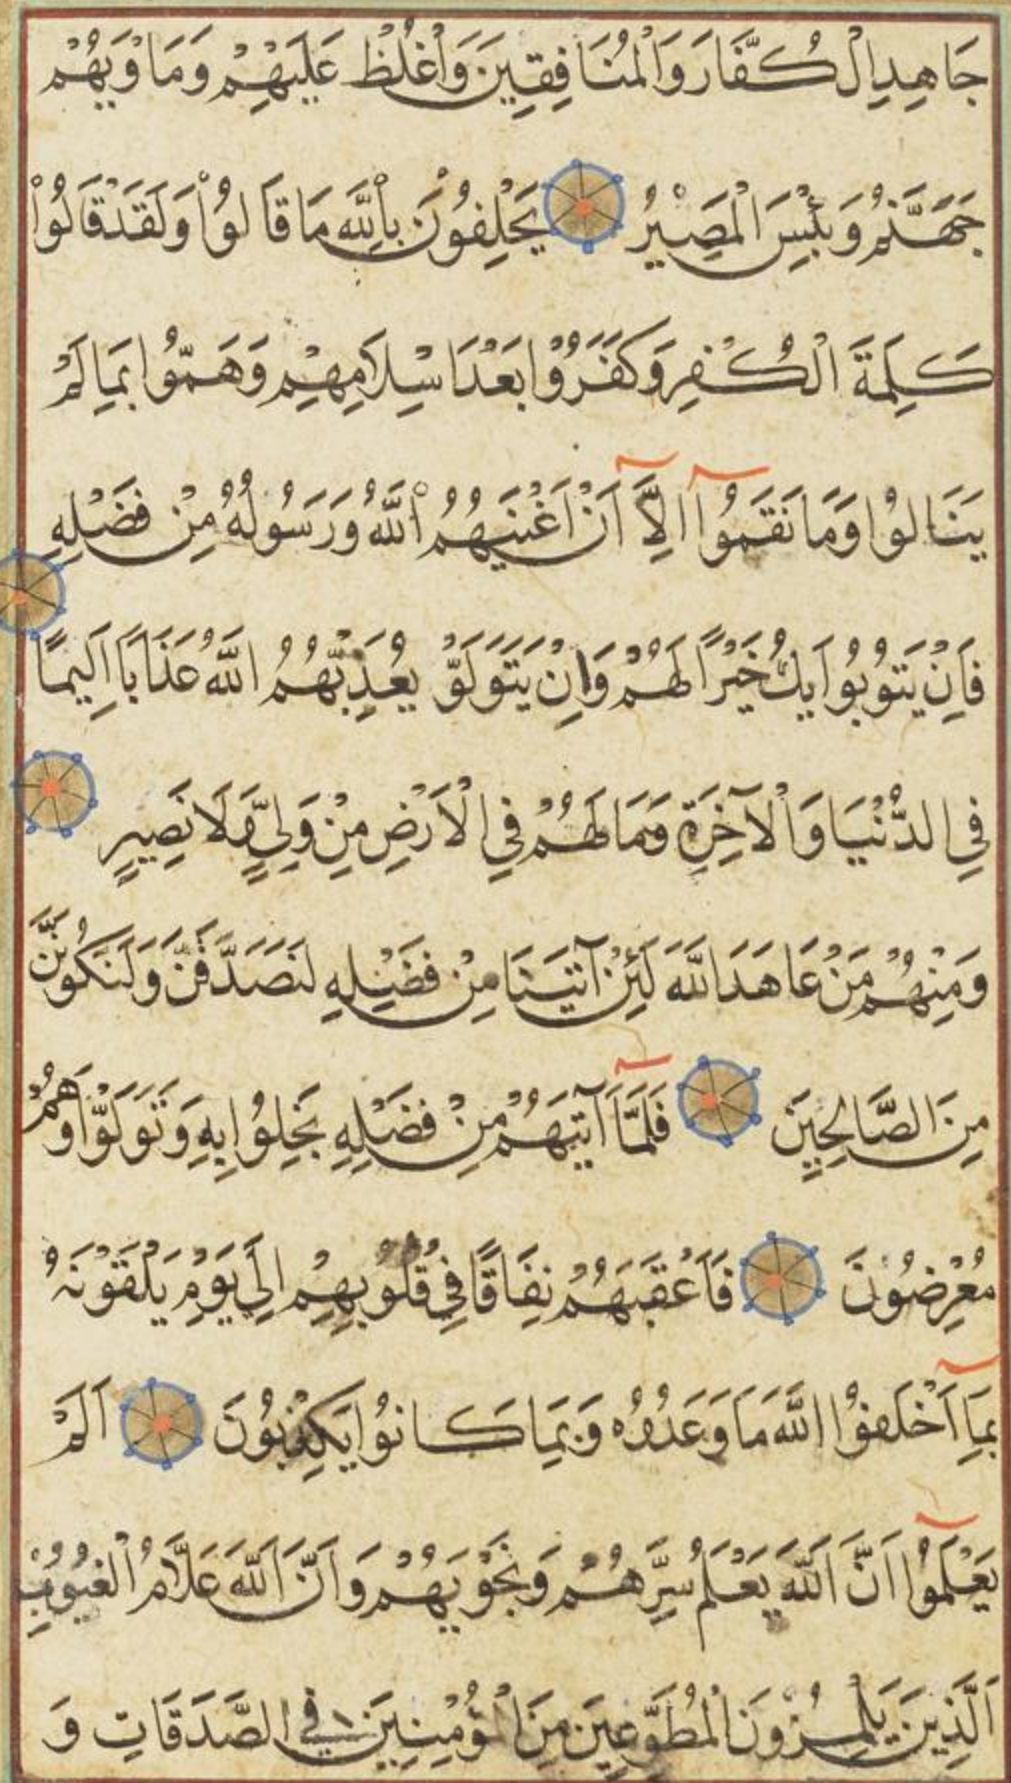 جَاهِدِ الْكُفَّارَ وَالْمُنَافِقِينَ وَاغْلُظْ عَلَيْهِمْ وَمَاْوٰيهُمْ
جَهَنَّمُ وَبِئْسَ الْمَصِيْرُ يَحْلِفُونَ بِاللَّهِ مَا قَالُوْا وَلَقَدْ قَالُوْا
كَلِمَةَ الْكُفْرِ وَكَفَرُوْا بَعْدَ اِسْلَامِهِمْ وَهَمُّوْا بِمَا لَمْ
يَنَالُوْا وَمَا نَقَمُوْا اِلَّا اَنْ اَغْنٰيهُمُ اللَّهُ وَرَسُولُهُ مِنْ فَضْلِهِ
فَاِنْ يَتُوبُوْا يَكُ خَيْرًا لَهُمْ وَاِنْ يَتَوَلَّوْ يُعَذِّبْهُمُ اللَّهُ عَذَابًا اَلِيمًا
فِي الدُّنْيَا وَالْآخِرَةِ وَمَا لَهُمْ فِي الْاَرْضِ مِنْ وَلِيٍّ وَلَا نَصِيرٍ
وَمِنْهُمْ مَنْ عَاهَدَ اللَّهَ لَئِنْ آتٰينَا مِنْ فَضْلِهِ لَنَصَّدَّقَنَّ وَلَنَكُونَنَّ
مِنَ الصَّالِحِينَ فَلَمَّا آتٰيهُمْ مِنْ فَضْلِهِ بَخِلُوْا بِهِ وَتَوَلَّوْا وَهُمْ
مُعْرِضُونَ فَاَعْقَبَهُمْ نِفَاقًا فِي قُلُوبِهِمْ اِلٰي يَوْمِ يَلْقَوْنَهُ
بِمَا اَخْلَفُوْا اللَّهَ مَا وَعَدُوْهُ وَبِمَا كَانُوْا يَكْذِبُونَ اَلَمْ
يَعْلَمُوْا اَنَّ اللَّهَ يَعْلَمُ سِرَّهُمْ وَنَجْوٰيهُمْ وَاَنَّ اللَّهَ عَلَّامُ الْغُيُوبِ
اَلَّذِينَ يَلْمِزُونَ الْمُطَّوِّعِينَ مِنَ الْمُؤْمِنِينَ فِي الصَّدَقَاتِ وَ